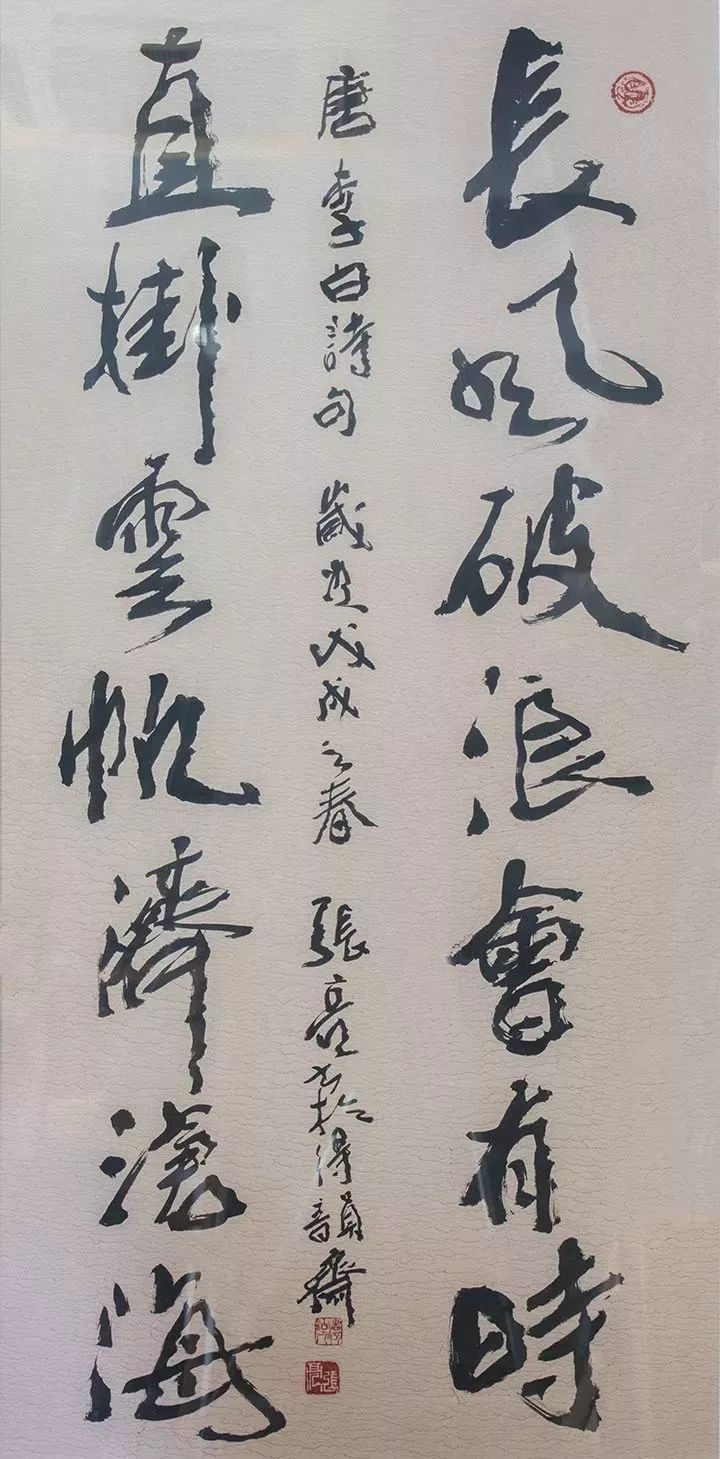 長風破浪會有時
直掛雲帆濟滄海
唐李白詩句 歲在戊戌之春 張亮書於得韻齋
張亮